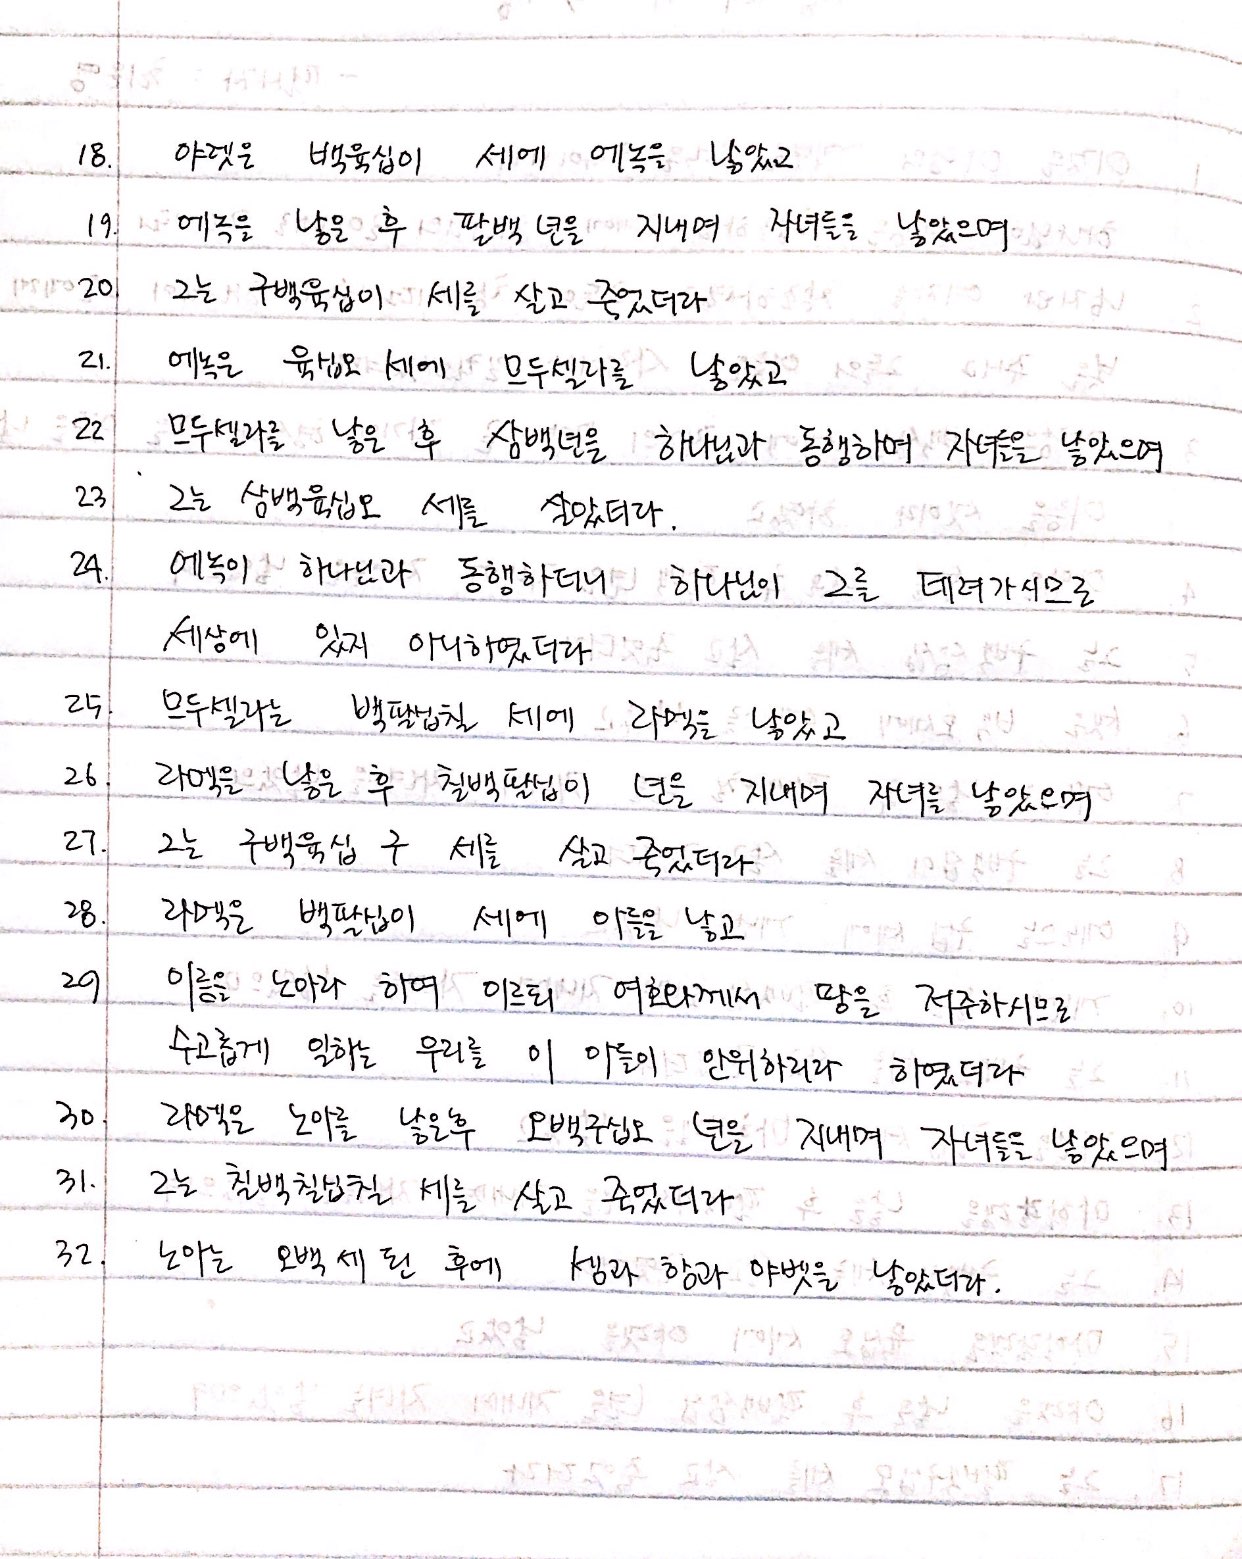 18. 야렛은 백육십이 세에 에녹을 낳았고
19. 에녹을 낳은 후 팔백 년을 지내며 자녀들을 낳았으며
20 그는 구백육십이 세를 살고 죽었더라
21. 에녹은 육십오 세에 므두셀라를 낳았고
22 므두셀라를 낳은 후 삼백년을 하나님과 동행하며 자녀들을 낳았으며
23 그는 삼백육십오 세를 살았더라.
24. 에녹이 하나님과 동행하더니 하나님이 그를 데려가시므로
세상에 있지 아니하였더라
25. 므두셀라는 백팔십칠 세에 라멕을 낳았고
26. 라멕을 낳은 후 칠백팔십이 년을 지내며 자녀를 낳았으며
27. 그는 구백육십 구 세를 살고 죽었더라
28. 라멕은 백팔십이 세에 아들을 낳고
29 이름을 노아라 하여 이르되 여호와께서 땅을 저주하시므로
수고롭게 일하는 우리를 이 아들이 안위하리라 하였더라
30. 라멕은 노아를 낳은후 오백구십오 년을 지내며 자녀들을 낳았으며
31. 그는 칠백칠십칠 세를 살고 죽었더라
32. 노아는 오백 세 된 후에 셈과 함과 야벳을 낳았더라.